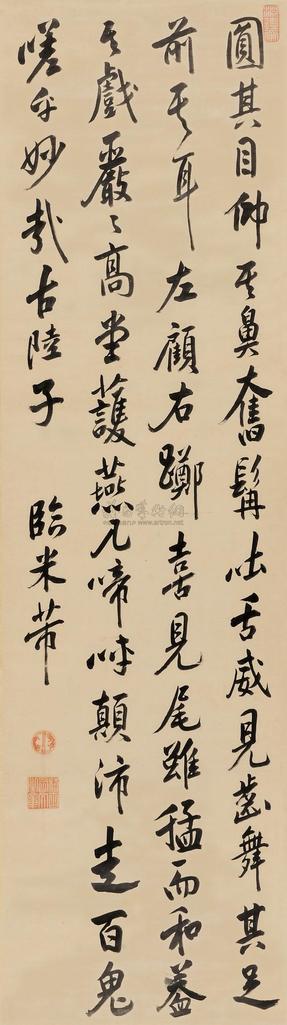 圓其目仰其鼻奮髯吐舌威見齒舞其足
前其耳左顧右躑喜見尾雖猛而和蓋
其戲嚴〻高堂護燕几啼呼顛沛走百鬼
嗟乎妙哉古陸子 臨米芾
artron.net